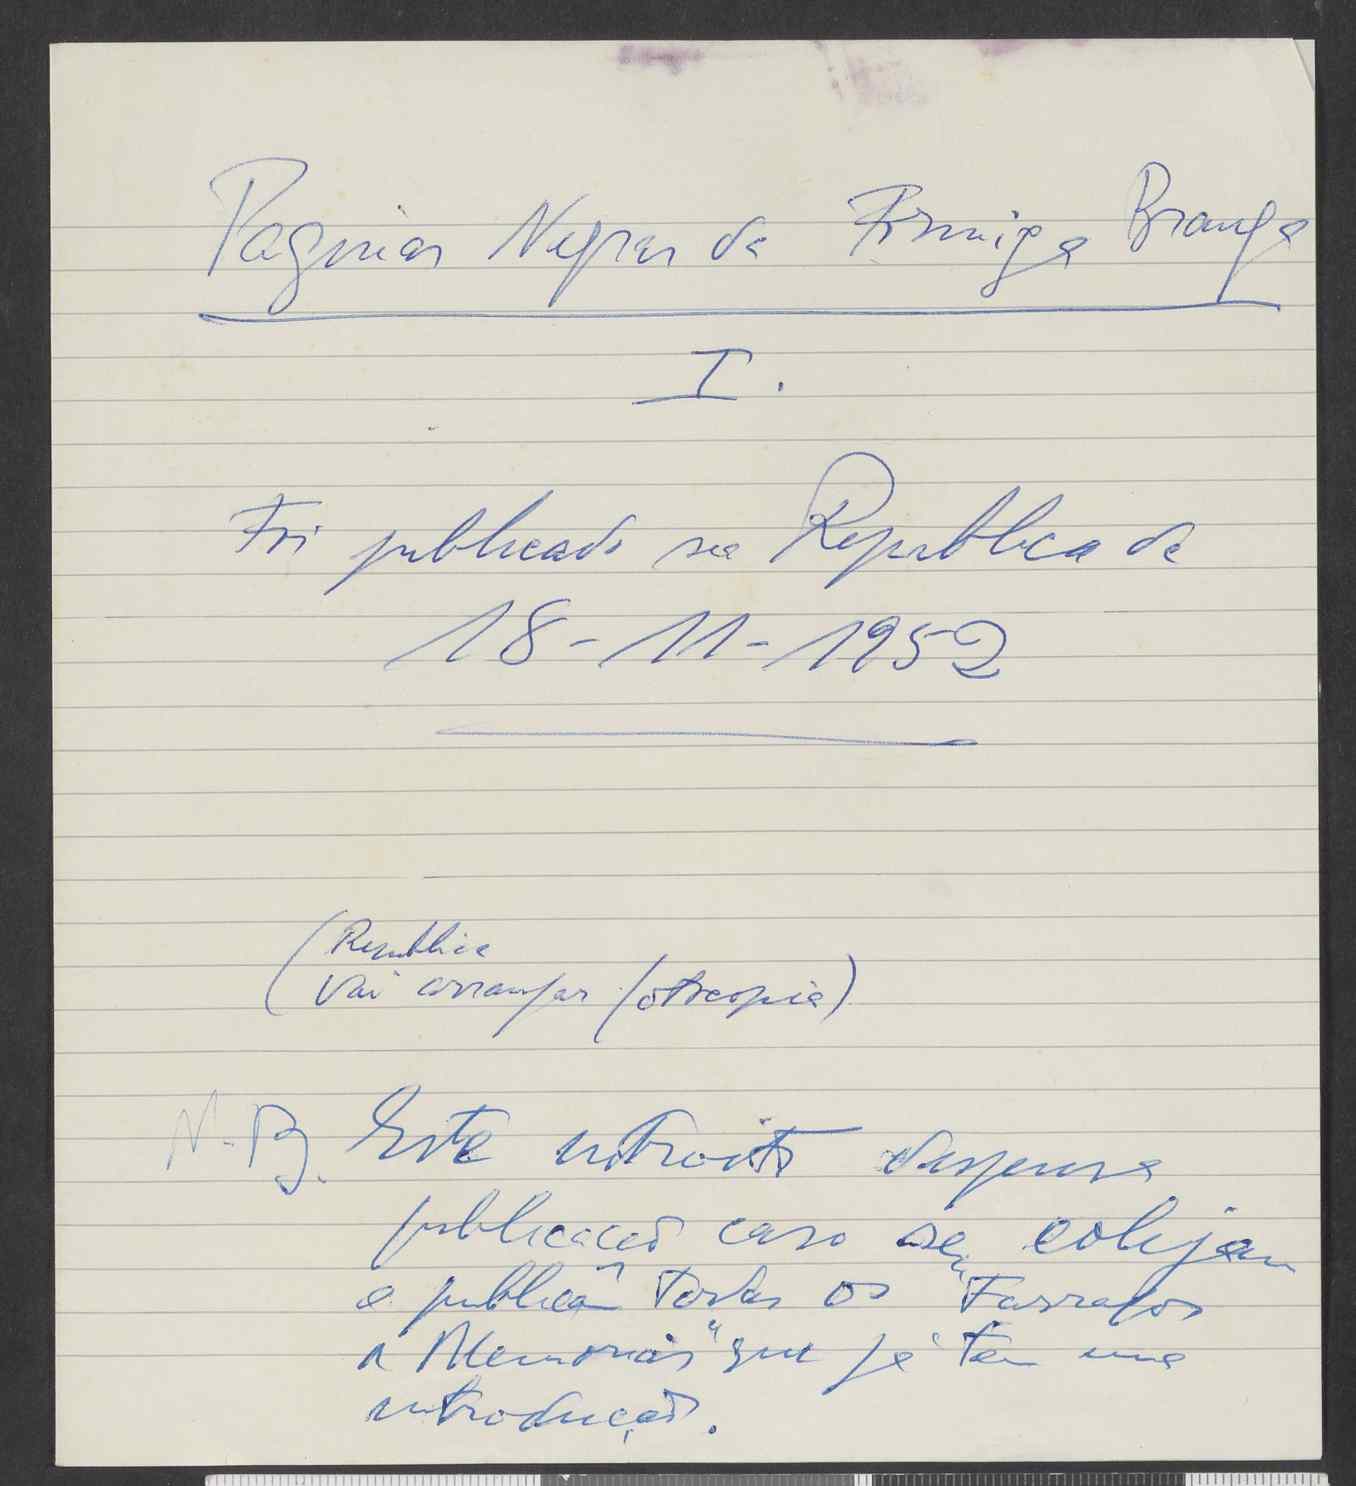 Paginas Negras da Formiga Branca
I.
Foi publicado na Republica de
18-11-1952
(Republica
Vai arranjar fotocopia)
N.B. Este introito dispensa
publicação caso se colijam
e publicam todos os "Farrapos
de Memorias" que já tem uma
introdução.